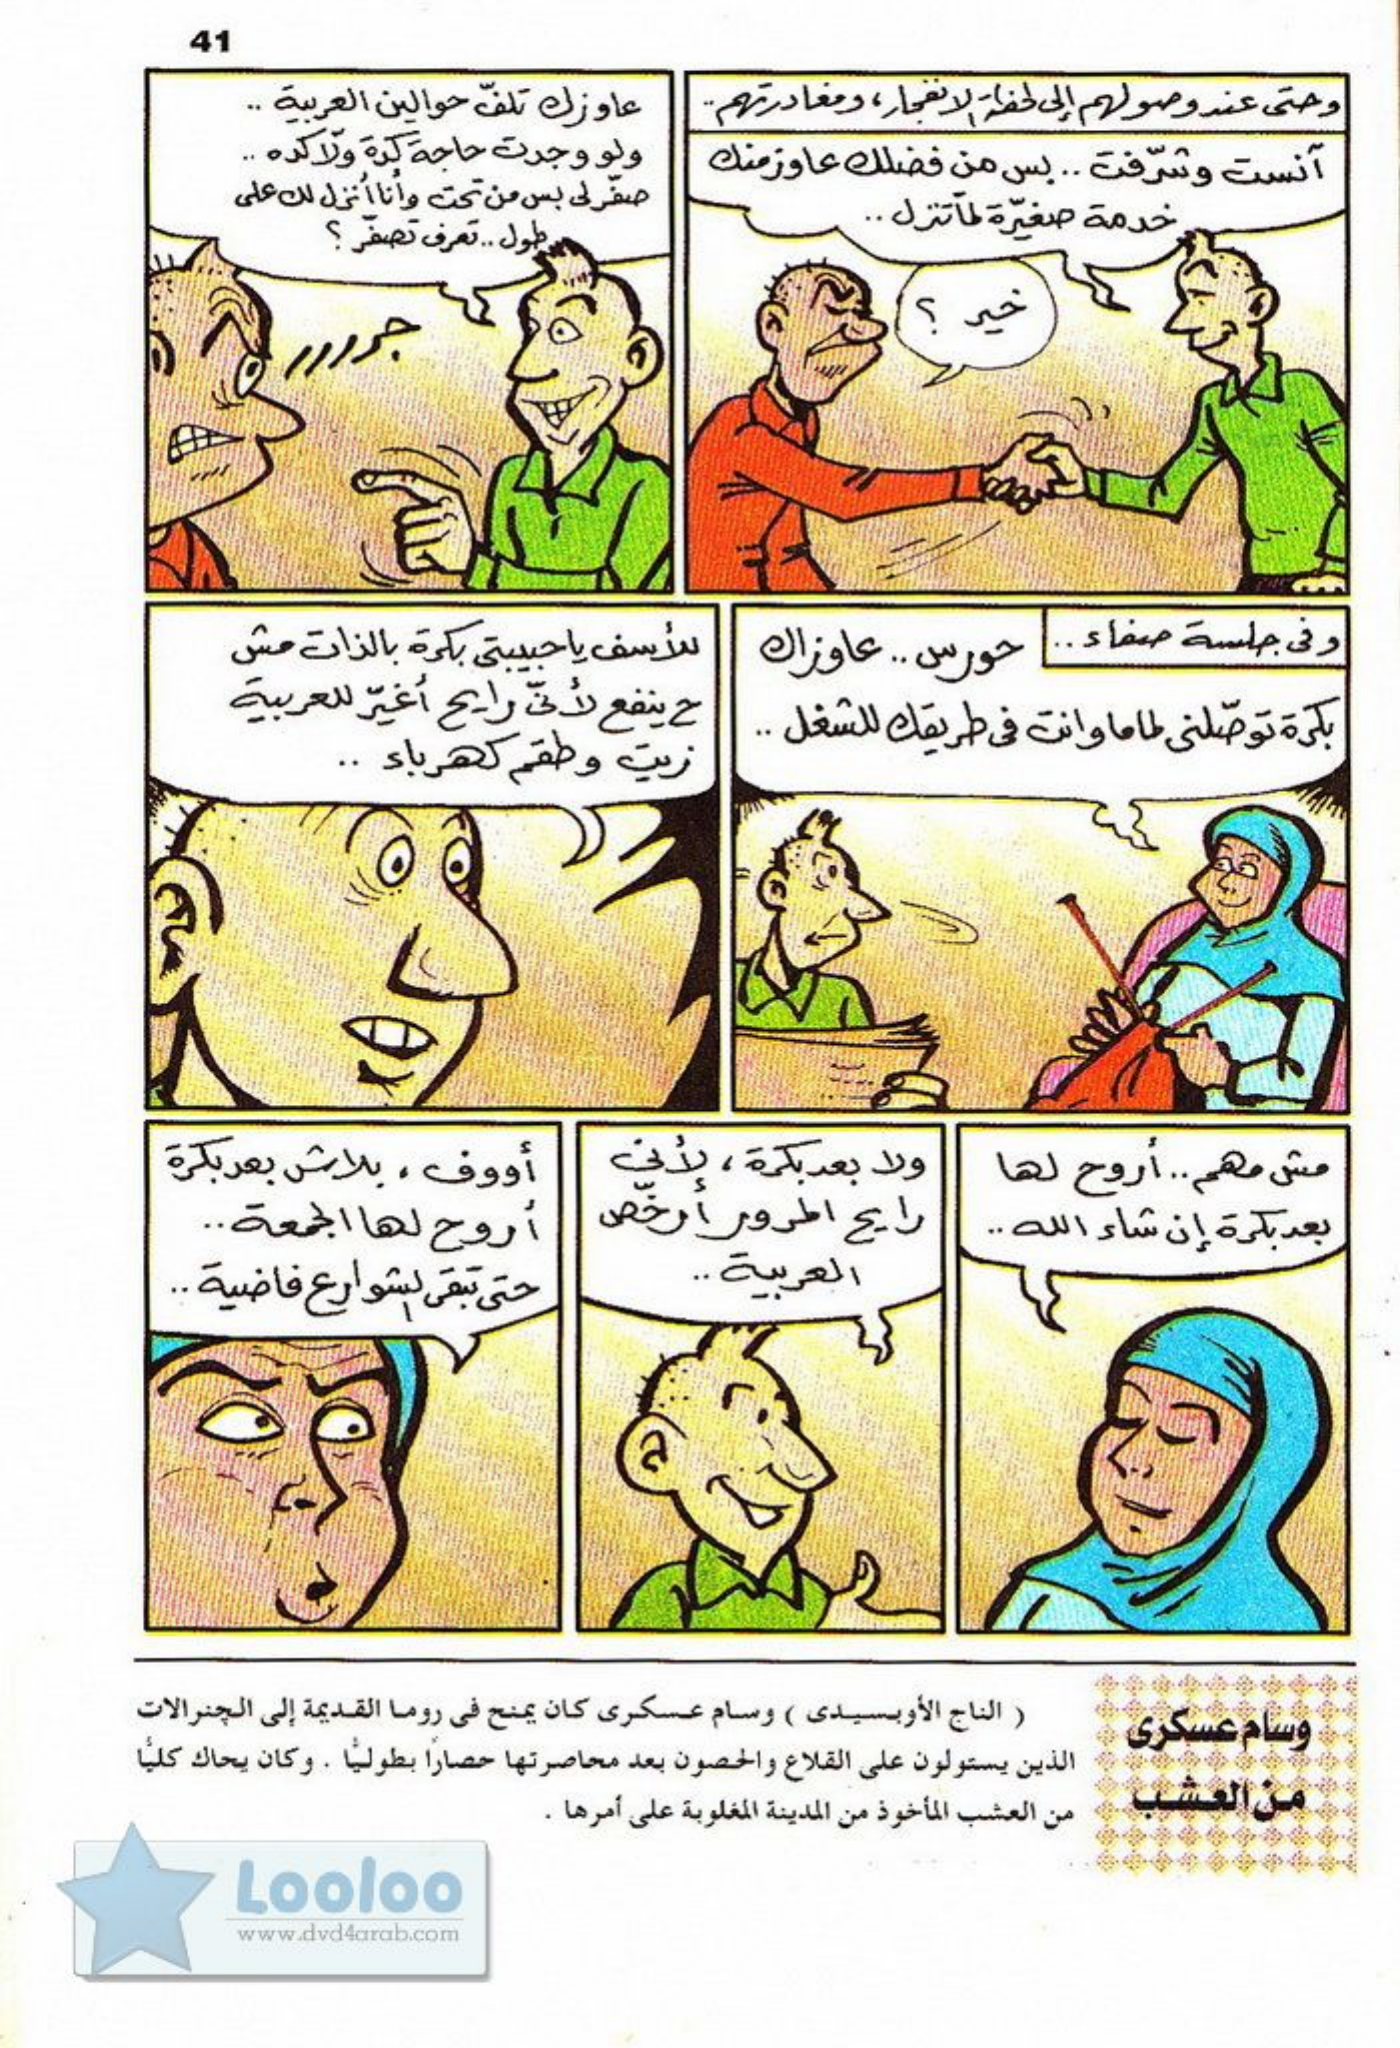 41
وحتى عند وصولهم إلى لحظة الانفجار، ومغادرتهم..
آنست وشرّفت .. بس من فضلك عاوز منك
خدمة صغيّرة لمّا تنزل ..
خير ؟
عاوزك تلفّ حوالين العربية ..
ولو وجدت حاجة كدة ولّا كده ..
صفّر لى بس من تحت وأنا أنزل لك على
طول .. تعرف تصفّر ؟
جرررر
وفى جلسة صفاء ..
حورس .. عاوزاك
بكرة توصّلنى لماما وانت فى طريقك للشغل ..
للأسف يا حبيبتى بكرة بالذات مش
ح ينفع لأنّى رايح أغيّر للعربية
زيت وطقم كهرباء ..
مش مهم .. أروح لها
بعد بكرة إن شاء الله ..
ولا بعد بكرة ، لأنى
رايح المرور أرخّص
العربية ..
أووف ، بلاش بعد بكرة
أروح لها الجمعة ..
حتى تبقى الشوارع فاضية ..
وسام عسكرى
من العشب
( التاج الأوبسيدى ) وسام عسكرى كان يمنح فى روما القديمة إلى الجنرالات
الذين يستولون على القلاع والحصون بعد محاصرتها حصارًا بطوليًّا . وكان يحاك كليًّا
من العشب المأخوذ من المدينة المغلوبة على أمرها .
Looloo
www.dvd4arab.com